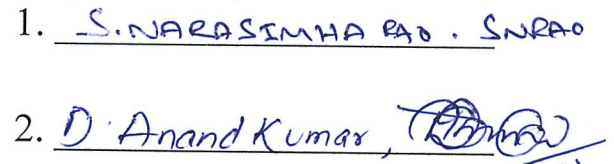 1. S. NARASIMHA RAO . SNRAO
2. D. Anand Kumar,